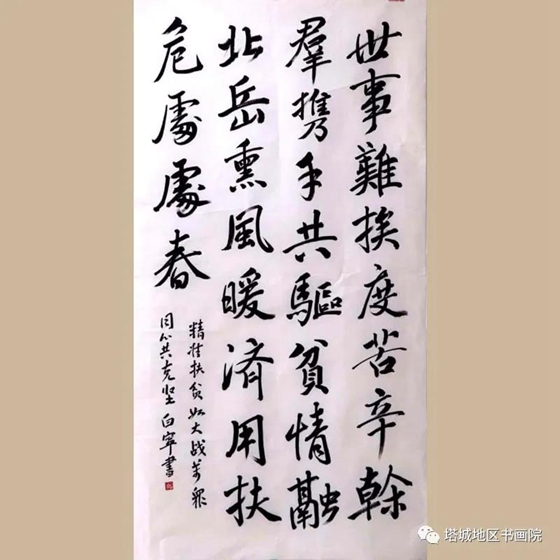 世事難挨度苦辛幹
羣攜手共驅貧情融
北岳熏風暖済用扶
危處處春
精准扶貧如大战萬眾
同心共克坚 白寧書
塔城地区书画院